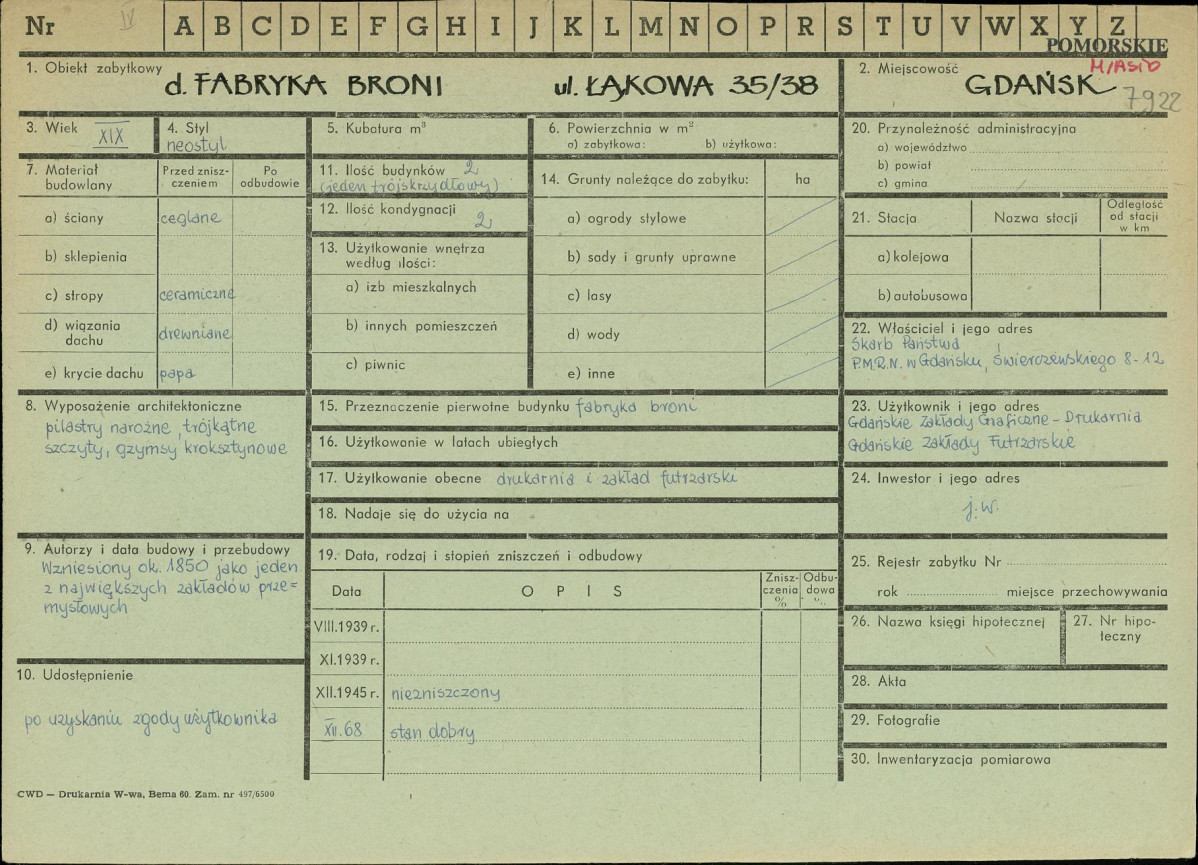 Nr IV A B C D E F G H I J K L M N O P R S T U V W X Y Z
POMORSKIE
MIASTO
1. Obiekt zabytkowy d. FABRYKA BRONI ul. ŁĄKOWA 35/38
2. Miejscowość GDAŃSK
7922
3. Wiek XIX
4. Styl neostyl
5. Kubatura m³
6. Powierzchnia w m²
a) zabytkowa: b) użytkowa:
7. Materiał budowlany
Przed znisz-
czeniem
Po
odbudowie
a) ściany ceglane
b) sklepienia
c) stropy ceramiczne
d) wiązania
dachu drewniane
e) krycie dachu papa
8. Wyposażenie architektoniczne
pilastry narożne, trójkątne
szczyty, gzymsy kroksztynowe
9. Autorzy i data budowy i przebudowy
Wzniesiony ok. 1850 jako jeden
z największych zakładów prze=
mysłowych
10. Udostępnienie
po uzyskaniu zgody użytkownika
11. Ilość budynków 2
(jeden trójskrzydłowy)
12. Ilość kondygnacji 2
13. Użytkowanie wnętrza
według ilości:
a) izb mieszkalnych
b) innych pomieszczeń
c) piwnic
14. Grunty należące do zabytku: ha
a) ogrody stylowe
b) sady i grunty uprawne
c) lasy
d) wody
e) inne
15. Przeznaczenie pierwotne budynku fabryka broni
16. Użytkowanie w latach ubiegłych
17. Użytkowanie obecne drukarnia i zakład futrzarski
18. Nadaje się do użycia na
19. Data, rodzaj i stopień zniszczeń i odbudowy
Data
O P I S
Znisz-
czenia
%
Odbu-
dowa
%
VIII.1939 r.
XI.1939 r.
XII.1945 r. niezniszczony
XII.68 stan dobry
20. Przynależność administracyjna
a) województwo
b) powiat
c) gmina
21. Stacja
Nazwa stacji
Odległość
od stacji
w km
a) kolejowa
b) autobusowa
22. Właściciel i jego adres
Skarb Państwa
P.M.R.N. w Gdańsku, Świerczewskiego 8-12
23. Użytkownik i jego adres
Gdańskie Zakłady Graficzne - Drukarnia
Gdańskie Zakłady Futrzarskie
24. Inwestor i jego adres
j.w.
25. Rejestr zabytku Nr
rok miejsce przechowywania
26. Nazwa księgi hipotecznej
27. Nr hipo-
teczny
28. Akta
29. Fotografie
30. Inwentaryzacja pomiarowa
CWD — Drukarnia W-wa, Bema 60. Zam. nr 497/6500